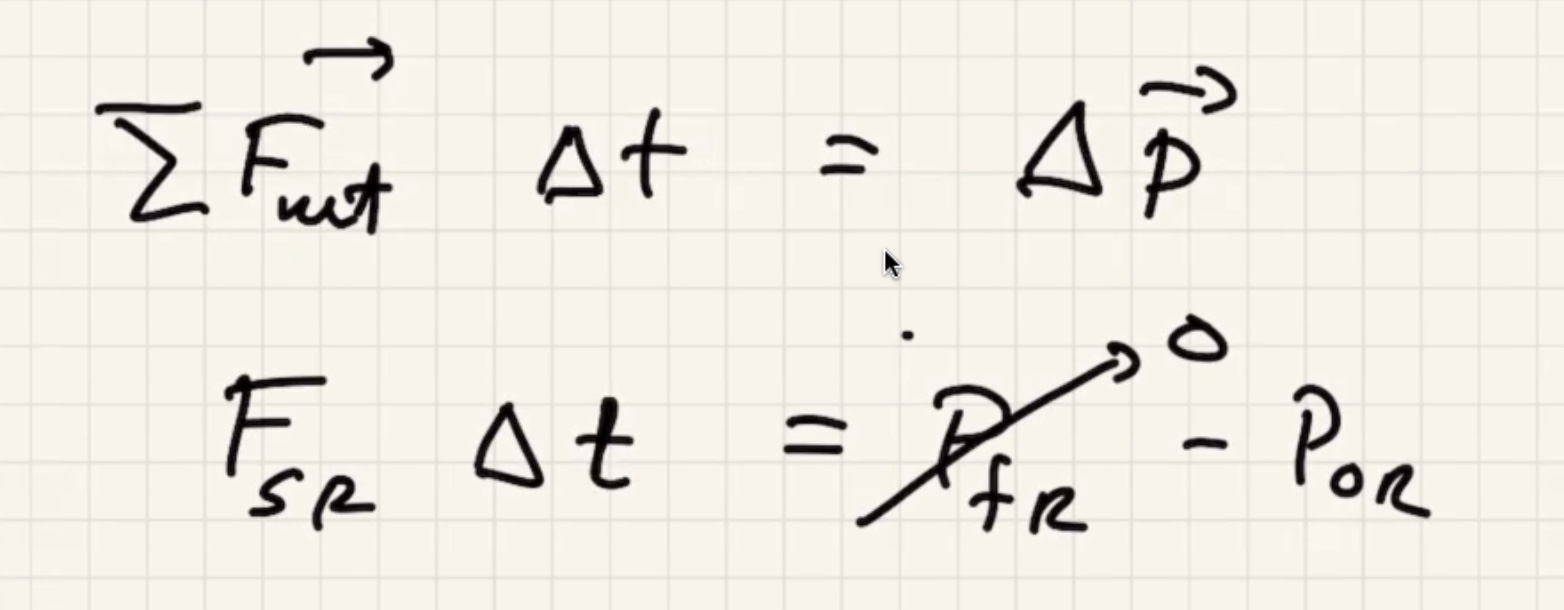 Σ F⃗_net Δt = Δp⃗
F_SR Δt = P_fR → 0 - P_OR